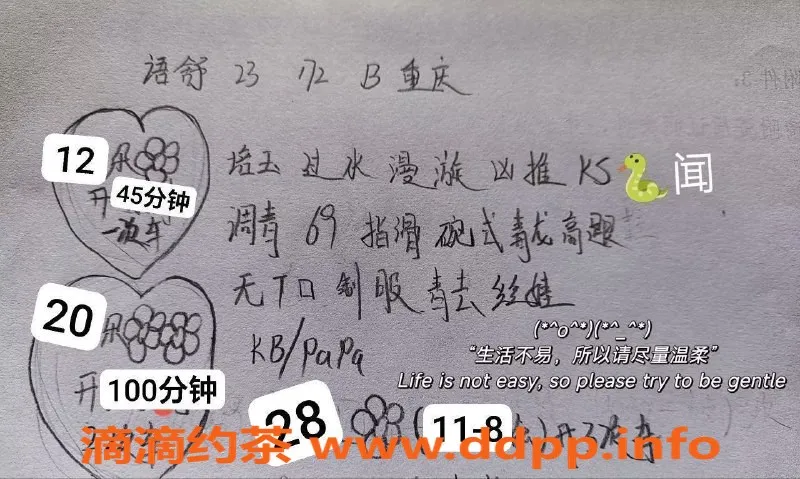 语舒 23 172 B 重庆
12 朵
45分钟
开
一次车
培玉 过水 漫漩 凶推 KS 闻
调青 69 指滑 碗式 毒龙 高跟
无TO 制服 青去 丝娃
20 朵
KB/PaPa
(*^o^*)(*^_^*)
“生活不易，所以请尽量温柔”
Life is not easy, so please try to be gentle
100分钟
开
28 (11-8 ) 开3次车
滴滴约茶 www.ddpp.info